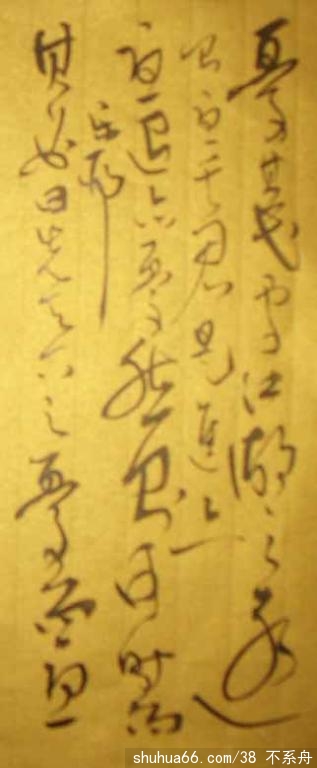 憂其民處江湖之遠
則憂其君是進亦
憂退亦憂然則何時而
樂耶
其必曰先天下之憂而憂
shuhua66.com/38 不系舟